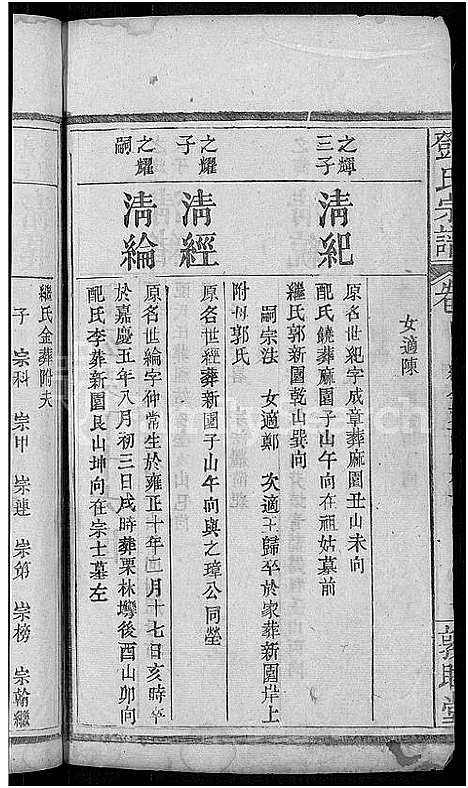 鄧氏宗譜
卷
女適陳
之輝三子
清紀
原名世紀字成章葬麻園丑山未向
配氏饒葬麻園子山午向在祖姑墓前
繼氏郭新園乾山巽向
嗣宗法 女適鄭 次適王歸卒於家葬新園岸上
附母郭氏
之耀子
清經
原名世經葬新園子山午向與之璋公同塋
之耀嗣
清綸
原名世綸字仲常生於雍正十年二月十七日亥時卒
於嘉慶五年八月初三日戌時葬栗林塆後酉山卯向
配氏李葬新園艮山坤向在宗士墓左
繼氏金葬附夫
子 宗科 宗甲 宗連 宗第 宗榜 宗翰繼